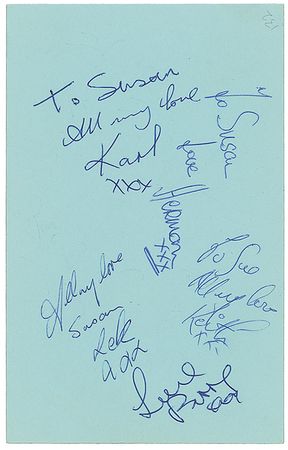 To Susan
All my love
Karl
xxx
To Susan
love
Herman
xxx
All my love
Susan
Lek
xxx
To Sue
All my love
Keith
xxx